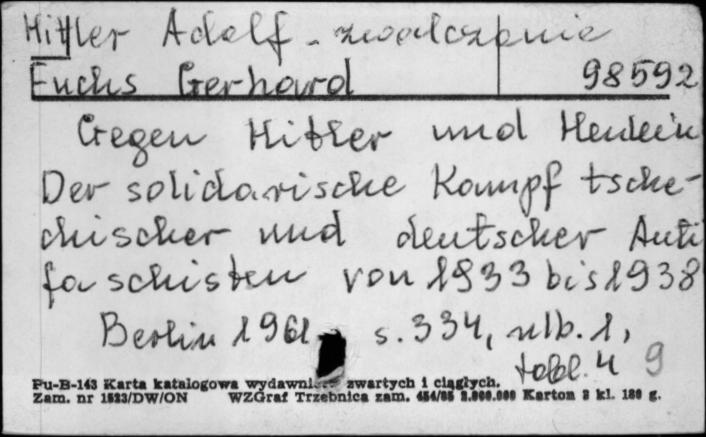 Hitler Adolf - zwalczanie
Fuchs Gerhard 98592
Gegen Hitler und Henlein
Der solidarische Kampf tsche-
chischer und deutscher Anti
faschisten von 1933 bis 1938
Berlin 1961 s. 334, nlb. 1,
tabl. 4 9
Pu-B-143 Karta katalogowa wydawnictw zwartych i ciągłych.
Zam. nr 1523/DW/ON WZGraf Trzebnica zam. 454/85 2.000.000 Karton 2 kl. 180 g.